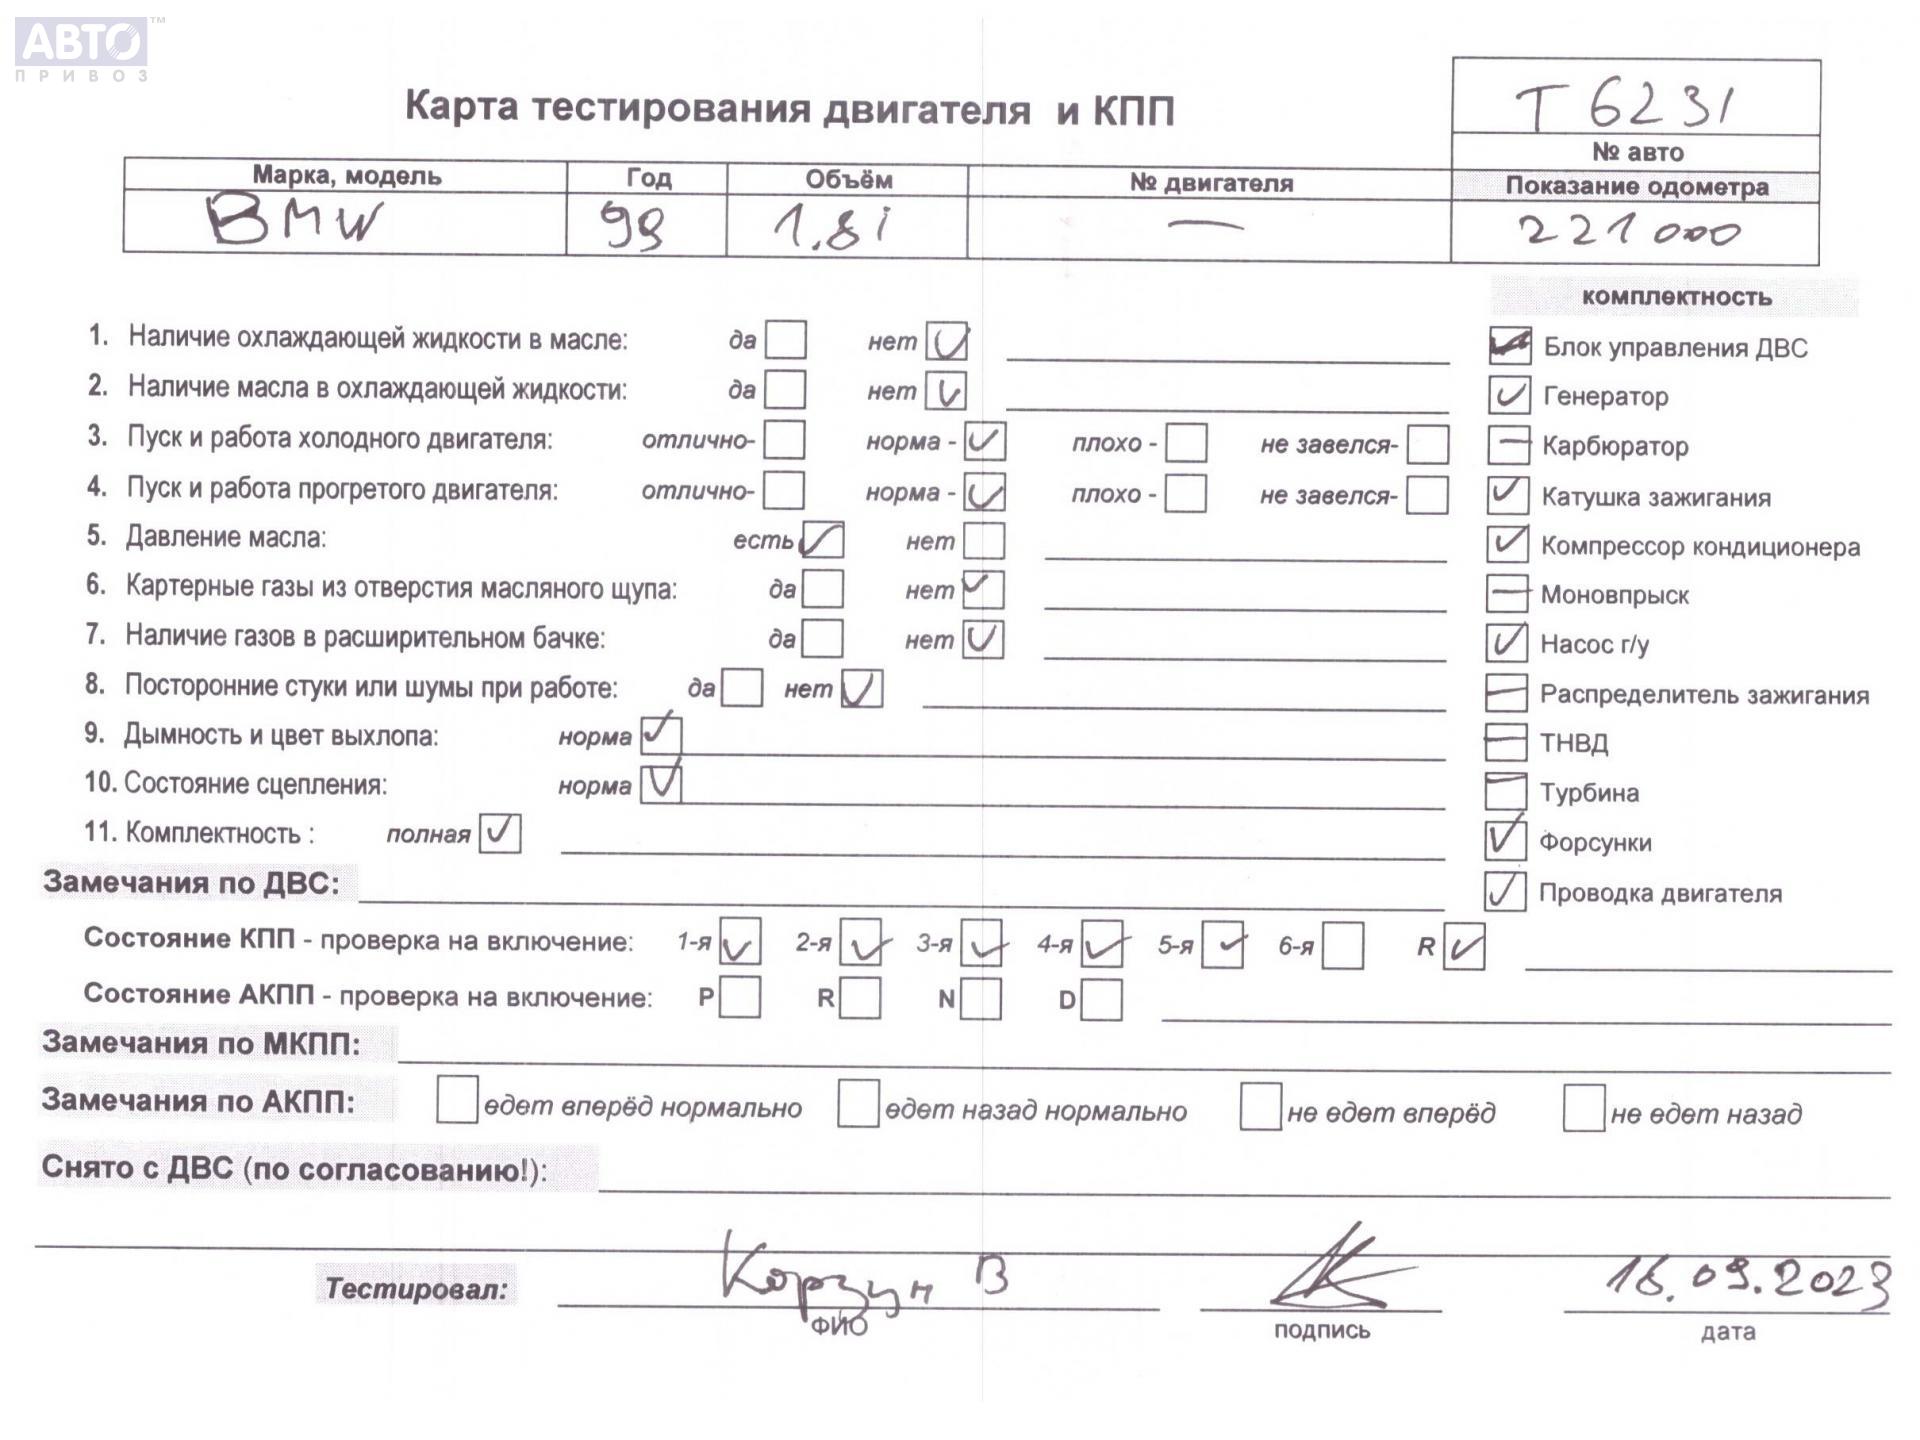 АВТО™
ПРИВОЗ
Карта тестирования двигателя и КПП
Т 6231
№ авто
Марка, модель Год Объём № двигателя Показание одометра
BMW 99 1.8i — 221000
комплектность
1. Наличие охлаждающей жидкости в масле: да нет
Блок управления ДВС
2. Наличие масла в охлаждающей жидкости: да нет
Генератор
3. Пуск и работа холодного двигателя: отлично- норма - плохо - не завелся-
Карбюратор
4. Пуск и работа прогретого двигателя: отлично- норма - плохо - не завелся-
Катушка зажигания
5. Давление масла: есть нет
Компрессор кондиционера
6. Картерные газы из отверстия масляного щупа: да нет
Моновпрыск
7. Наличие газов в расширительном бачке: да нет
Насос г/у
8. Посторонние стуки или шумы при работе: да нет
Распределитель зажигания
9. Дымность и цвет выхлопа: норма
ТНВД
10. Состояние сцепления: норма
Турбина
11. Комплектность : полная
Форсунки
Замечания по ДВС:
Проводка двигателя
Состояние КПП - проверка на включение: 1-я 2-я 3-я 4-я 5-я 6-я R
Состояние АКПП - проверка на включение: P R N D
Замечания по МКПП:
Замечания по АКПП: едет вперёд нормально едет назад нормально не едет вперёд не едет назад
Снято с ДВС (по согласованию!):
Тестировал: Корзун В 16.09.2023
ФИО подпись дата